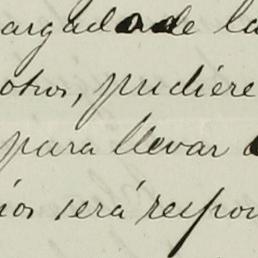 argado de la
otros, pudiere
para llevar
ios será respon